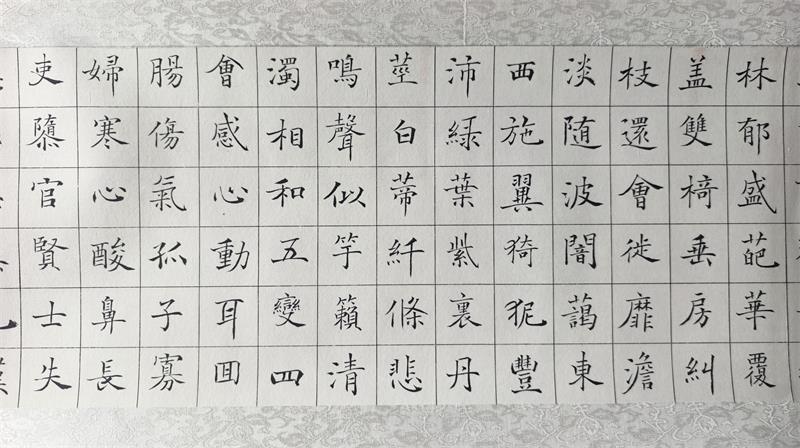 林郁盛葩華覆
盖雙椅垂房糾
枝還會徙靡澹
淡随波闇藹東
西施翼猗狔豐
沛綠葉紫裏丹
莖白蒂纤條悲
鳴聲似竽籟清
濁相和五變四
會感心動耳囬
腸傷氣孤子寡
婦寒心酸鼻長
吏隳官賢士失